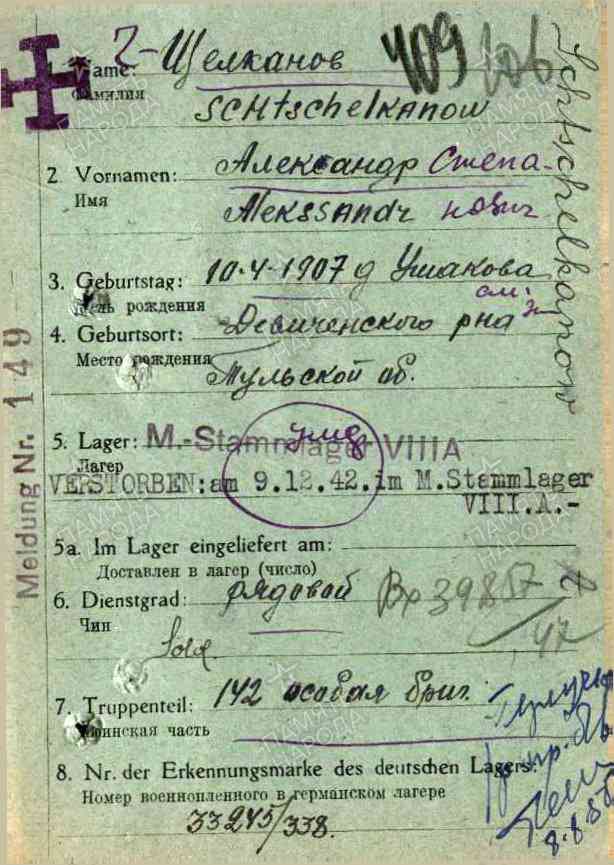 Щелканов 409
1. Name:
Фамилия
Schtschelkanow
Schtschelkanow
2. Vornamen: Александр Степа-
Имя
Alekssandr нович
3. Geburtstag: 10-4-1907 д Ушакова
День рождения
4. Geburtsort: Девиченского рна
Место рождения
Тульской об.
Meldung Nr. 149
умер
5. Lager: M.-Stammlager VIIIA
Лагер
VERSTORBEN: am 9.12.42.im M.Stammlager
VIII.A.-
5a. Im Lager eingeliefert am:
Доставлен в лагер (число)
6. Dienstgrad: рядовой Вх 39857
Чин
47
Sold
7. Truppenteil: 142 особая бриг.
Воинская часть
8. Nr. der Erkennungsmarke des deutschen Lagers:
Номер военнопленного в германском лагере
33245/338.
ПАМЯТЬ
НАРОДА